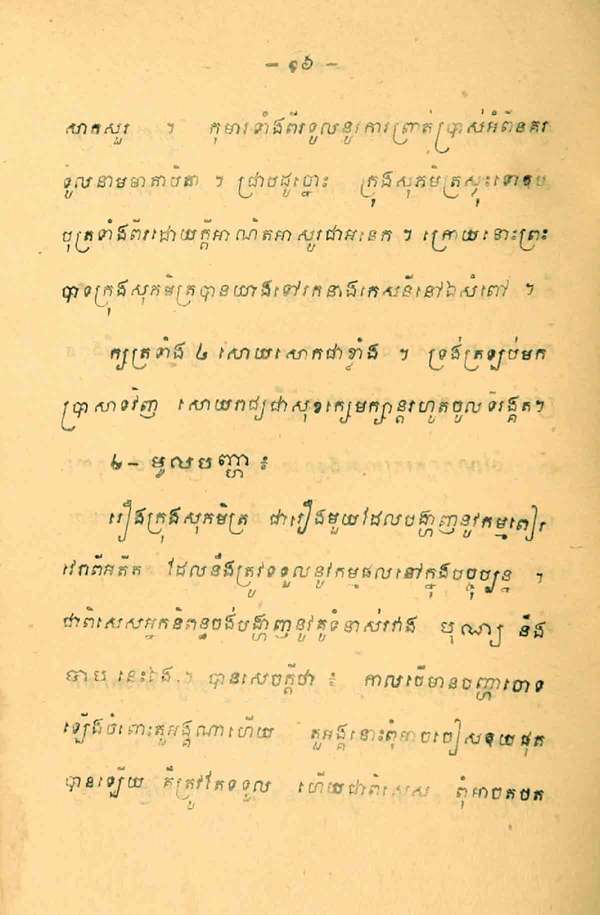 – ១៦ –
សាកសួរ ។ កុមារទាំងពីរទូលនូវការព្រាត់ប្រាស់អំពីនគរ
ទូលនាមមាតាបិតា ។ ជ្រាបដូច្នោះ ក្រុងសុភមិត្រស្ទុះទៅឱប
បុត្រទាំងពីរដោយក្ដីអាណិតអាសូរជាអនេក ។ ក្រោយនោះព្រះ
បាទក្រុងសុភមិត្របានយាងទៅរកនាងកេសនីនៅឯសំពៅ ។
ក្សត្រទាំង ៤ សោយសោកជាខ្លាំង ។ ទ្រង់ត្រឡប់មក
ប្រាសាទវិញ សោយរាជ្យជាសុខក្សេមក្សាន្តរហូតចូលទិវង្គត។
៤ – មូលបញ្ហា ៖
រឿងក្រុងសុភមិត្រ ជារឿងមួយដែលបង្ហាញនូវកម្មពៀរ
វេរាពីអតីត ដែលនឹងត្រូវទទួលនូវកម្មផលនៅក្នុងបច្ចុប្បន្ន ។
ជាពិសេសអ្នកនិពន្ធចង់បង្ហាញនូវគូទំនាស់រវាង បុណ្យ នឹង
បាប នេះឯង . ។ បានសេចក្ដីថា ៖ កាលបើមានបញ្ហាចោទ
ឡើងចំពោះតួអង្គណាហើយ តួអង្គនោះពុំអាចចៀសវាយផុត
បានឡើយ គឺត្រូវតែទទួល ហើយជាពិសេស ពុំអាចតបត